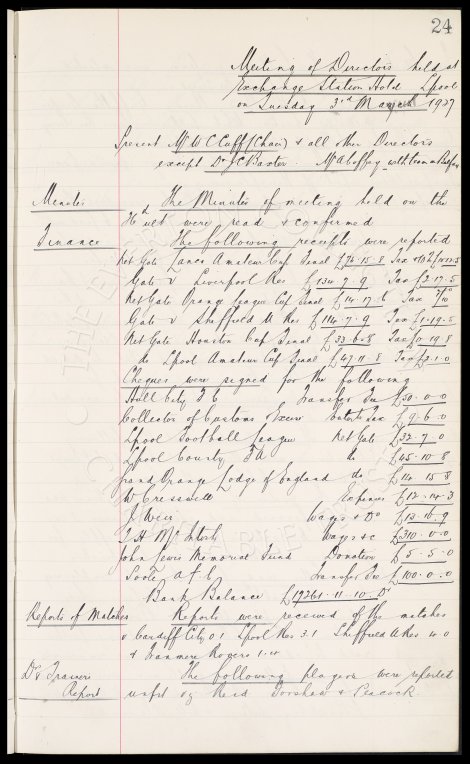 24
Meeting of Directors held at
Exchange Station Hotel Lpool
on Tuesday 3rd May 1927
Present Mr W C Cuff (Chair) & all other Directors
except Dr J C Baxter. Mr A Coffey with team at Belfast
Minutes The Minutes of meeting held on the
ult were read & confirmed
Finance The following receipts were reported
Net Gate Lancs Amateur Cup Final £74.15.8 Tax
Gate v Liverpool Res £134.7.9 Tax £2.17.5
Net Gate Orange League Cup Final £14.17.6 Tax
Gate v Sheffield U Res £114.7.9 Tax £1.19.5
Net Gate Houston Cup Final £33.6.8 Tax
do Lpool Amateur Cup Final £47.11.8 Tax £3.1.0
Cheques were signed for the following
Hull City F C Transfer Fee £50.0.0
Collector of Customs Excise Entertn Tax £9.6.0
Lpool Football League Net Gate £32.7.0
Lpool County F A do £45.10.8
Grand Orange Lodge of England do £14.15.8
W Cresswell Expenses £12.14.3
J Weir Wages & Do £13.10.9
T H McIntosh Wages &c £310.0.0
John Lewis Memorial Fund Donation £5.5.0
Foots a/c Transfer Fee £100.0.0
Bank Balance £19261.11.10 Dr
Reports of Matches Reports were received of the matches
v Cardiff City 0.1 Lpool Res 3.1 Sheffield U Res 4.0
& Tranmere Rogers 1.4
Dr & Trainers The following players were reported
Report unfit viz Reid Forshaw & Peacock